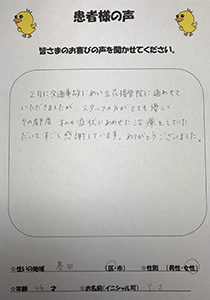 患者様の声
皆さまのお喜びの声を聞かせてください。
2月に交通事故にあい立花接骨院に通わせて
いただきましたが、スタッフの方がとても優しく
その都度 私の症状にあわせた治療をしていた
だいてすごく感謝しています。ありがとうございました。
☆住いの地域 (区・市) ☆性別 (男性・女性)
☆年齢 才 ☆お名前(イニシャル可)